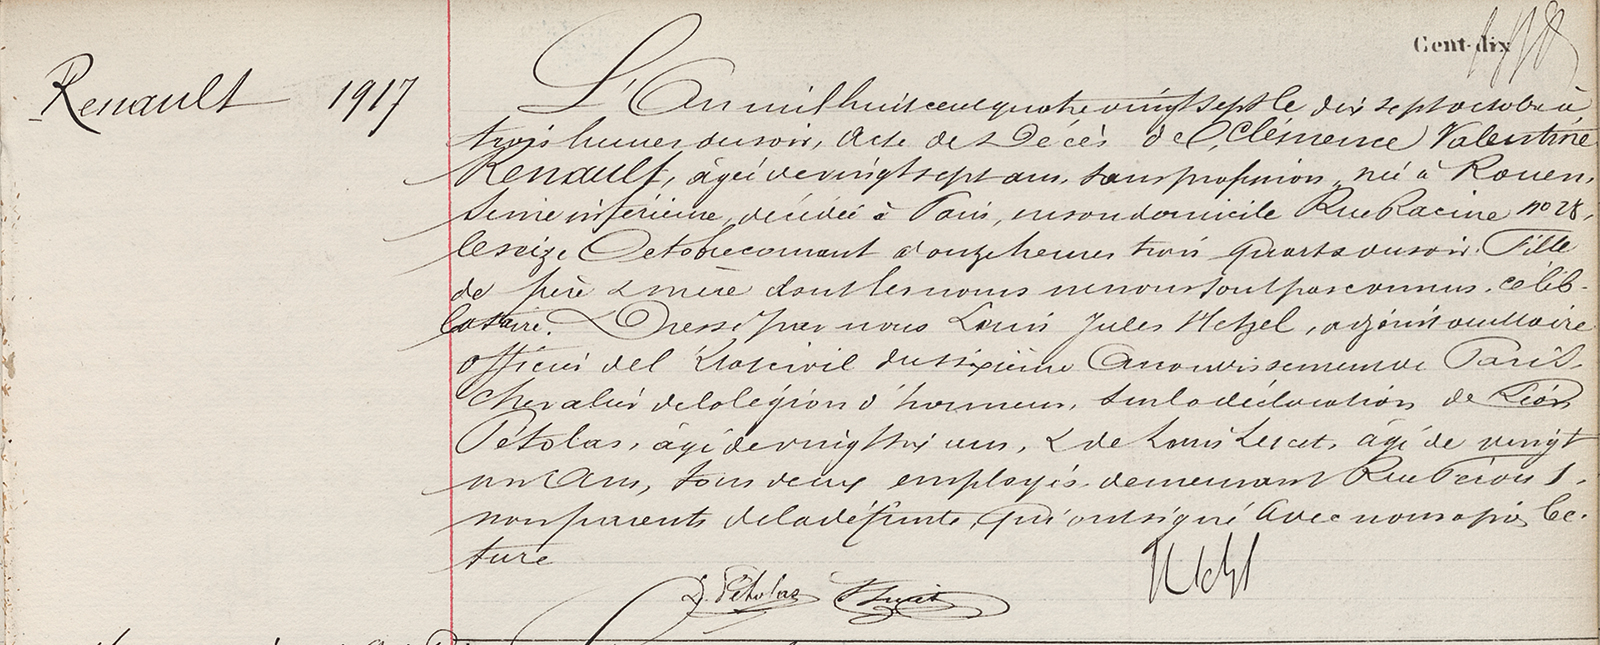 Cent-dix
Renault 1917
L'An mil huit cent quatre vingt sept le dix sept octobre à
trois heures du soir, Acte de Décès de Clémence Valentine
Renault, âgée de vingt sept ans, sans profession, née à Rouen,
Seine inférieure, décédée à Paris, en son domicile Rue Racine no 28,
le seize Octobre courant à onze heures trois quarts du soir. Fille
de père & mère dont les noms ne nous sont pas connus. célib-
bataire. Dressé par nous Louis Jules Hetzel, adjoint au Maire
officier de l'Etat civil du sixième Arrondissement de Paris.
Chevalier de la légion d'honneur, sur la déclaration de Léon
Pétolas, âgé de vingt six ans, & de Louis Lucet, âgé de vingt
un Ans, tous deux employés demeurant Rue Férou 1.
non parents de la défunte, qui ont signé Avec nous après lec-
ture
L. Pétolas Hetzel